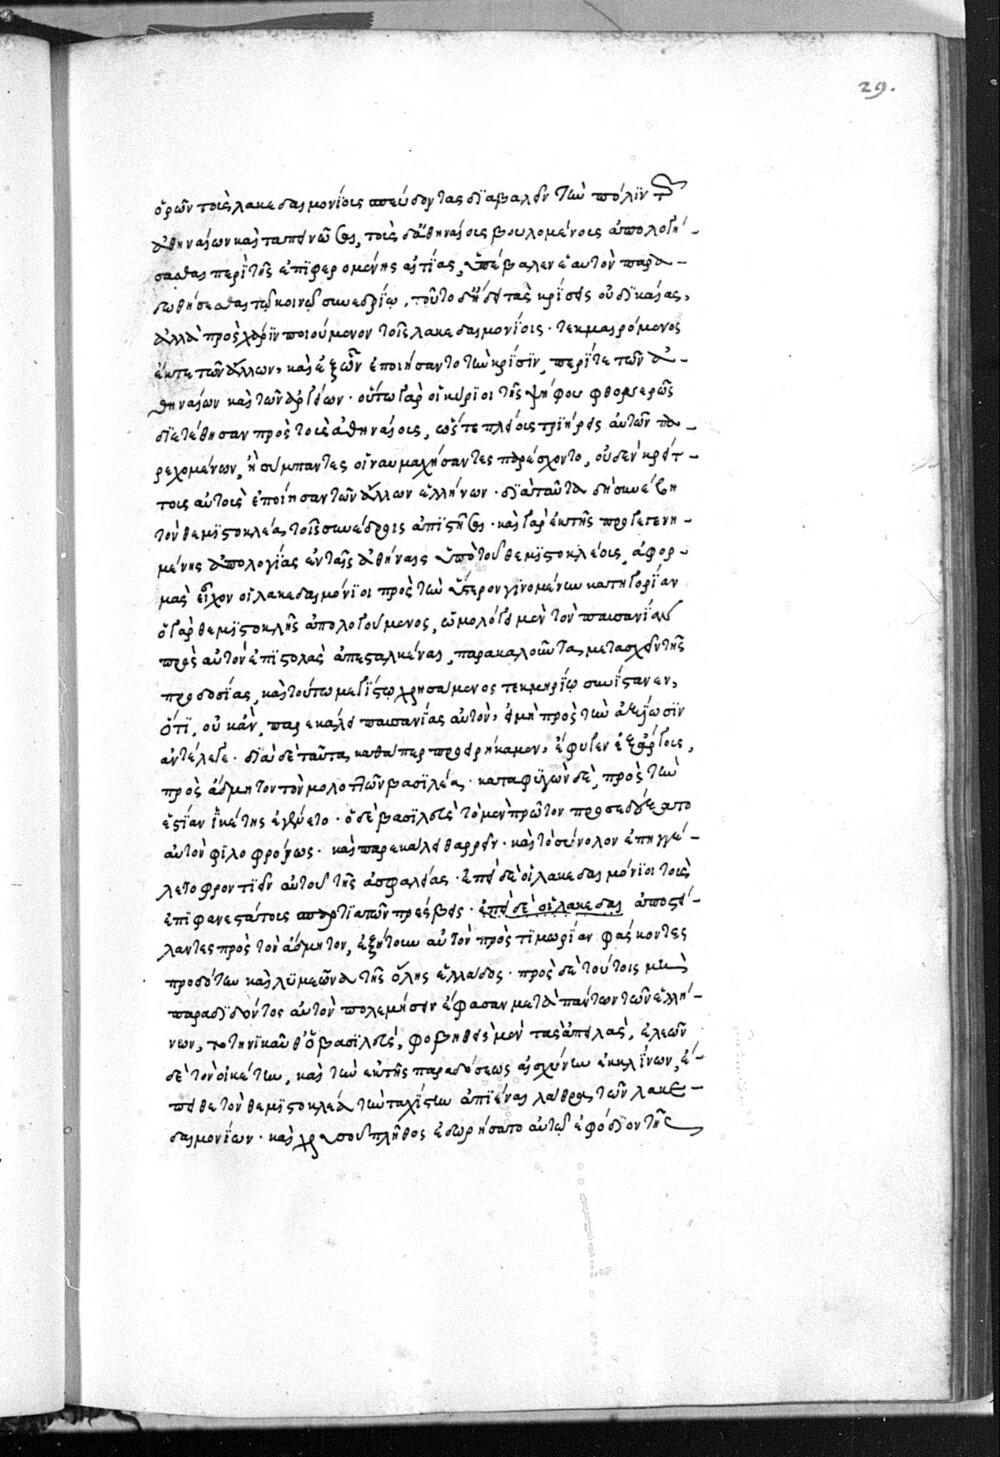 29.
ὁρῶν τοὺς λακεδαιμονίοις σπεύδοντας διαβαλεῖν τὴν πόλϊν τῶν
ἀθηναίων καὶ ταπεινῶσαι, τοῖς δ' ἀθηναίοις βουλομένοις ἀπολογή-
σασθαι περὶ τῆς ἐπϊφερομένης αἰτίας, ὑπέβαλεν ἑαυτὸν παρα-
δωθήσεσθαι τῷ κοινῷ συνεδρίῳ. τοῦτο δ' ᾔδει τὰς κρίσεις οὐ δϊκαίας,
ἀλλὰ πρὸς χάρϊν ποιούμενον τοῖς λακεδαιμονίοις. τεκμαιρόμενος
ἔκ τε τῶν ἄλλων, καὶ ἐξ ὧν ἐποιήσαντο τὴν κρίσϊν, περί τε τῶν ἀ-
θηναίων καὶ τῶν ἀργείων. οὕτω γὰρ οἱ κύρϊοι τῆς ψήφου φθονερῶς
δϊετέθησαν πρὸς τοὺς ἀθηναίοις, ὥστε πλείοις τρϊήρεις αὐτῶν πα-
ρεχομένων, ἢ σύμπαντες οἱ ναυμαχήσαντες παρέσχοντο, οὐδὲν κρείτ-
τοις αὐτοὺς ἐποίησαν τῶν ἄλλων ἑλλήνων. δϊὰ ταῦτα δὴ συνέβη
τὸν θεμϊστοκλέα τοῖς συνέδροις ἀπϊστῆσαι. καὶ γὰρ ἐκ τῆς προγεγενη-
μένης ἀπολογΐας ἐν ταῖς ἀθήναις ὑπὸ τοῦ θεμϊστοκλέοις, ἀφορ-
μὰς εἶχον οἱ λακεδαιμόνϊοι πρὸς τὴν ὕστερον γϊνομένην κατηγορΐαν
ὁ γὰρ θεμϊστοκλῆς ἀπολογούμενος, ὡμολόγει μὲν τὸν παυσανίαν
πρὸς αὐτὸν ἐπϊστολὰς ἀπεσταλκέναι, παρακαλοῦντα μετασχεῖν τῆς
προδοσίας, καὶ τούτω μεγΐστῳ χρησάμενος τεκμηρίῳ συνίστανεν,
ὅτϊ, οὐκ ἂν, παρεκάλει παυσανΐας αὐτὸν, εἰ μὴ πρὸς τὴν ἀξίωσϊν
ἀντέλεγε. δϊὰ δὲ ταῦτα, καθάπερ προειρήκαμεν, ἔφυγεν ἐξ ἄργοις,
πρὸς ἄδμητον τὸν μολοττῶν βασϊλέα. καταφϋγὼν δὲ, πρὸς τὴν
ἑστίαν ἱκέτης ἐγένετο. ὁ δὲ βασϊλεὺς τὸ μὲν πρῶτον προσεδέξατο
αὐτὸν φϊλοφρόνως. καὶ παρεκάλει θαρρεῖν. καὶ τὸ σύνολον ἐπηγγέ-
λετο φροντϊεῖν αὐτοῦ τῆς ἀσφαλείας. ἐπεὶ δὲ οἱ λακεδαιμόνϊοι τοὺς
ἐπϊφανεστάτοις σπαρτϊατῶν πρέσβεις. ἐπεὶ δὲ οἱ λακεδαι ἀποστεί-
λαντες πρὸς τὸν ἄδμητον, ἐξήτουν αὐτὸν πρὸς τϊμωρΐαν φάσκοντες
προδότην καὶ λϋμεῶνα τῆς ὅλης ἑλλάδος. πρὸς δὲ τούτοις μὴ
παραδϊδόντος αὐτὸν πολεμήσειν ἔφασαν μετὰ πάντων τῶν ἑλλή-
νων, τοτηνϊκαῦθ' ὁ βασϊλεὺς, φοβηθεὶς μὲν τὰς ἀπειλὰς, ἐλεῶν
δὲ τὸν οἰκέτην, καὶ τὴν ἐκ τῆς παραδόσεως αἰσχύνην ἐκκλΐνων, ἔ-
πειθε τὸν θεμϊστοκλέα τὴν ταχίστην ἀπϊέναι λάθρᾳ τῶν λακε-
δαιμονΐων. καὶ χρυσοῦ πλῆθος ἐδωρήσατο αὐτῷ ἐφόδϊον τῆς